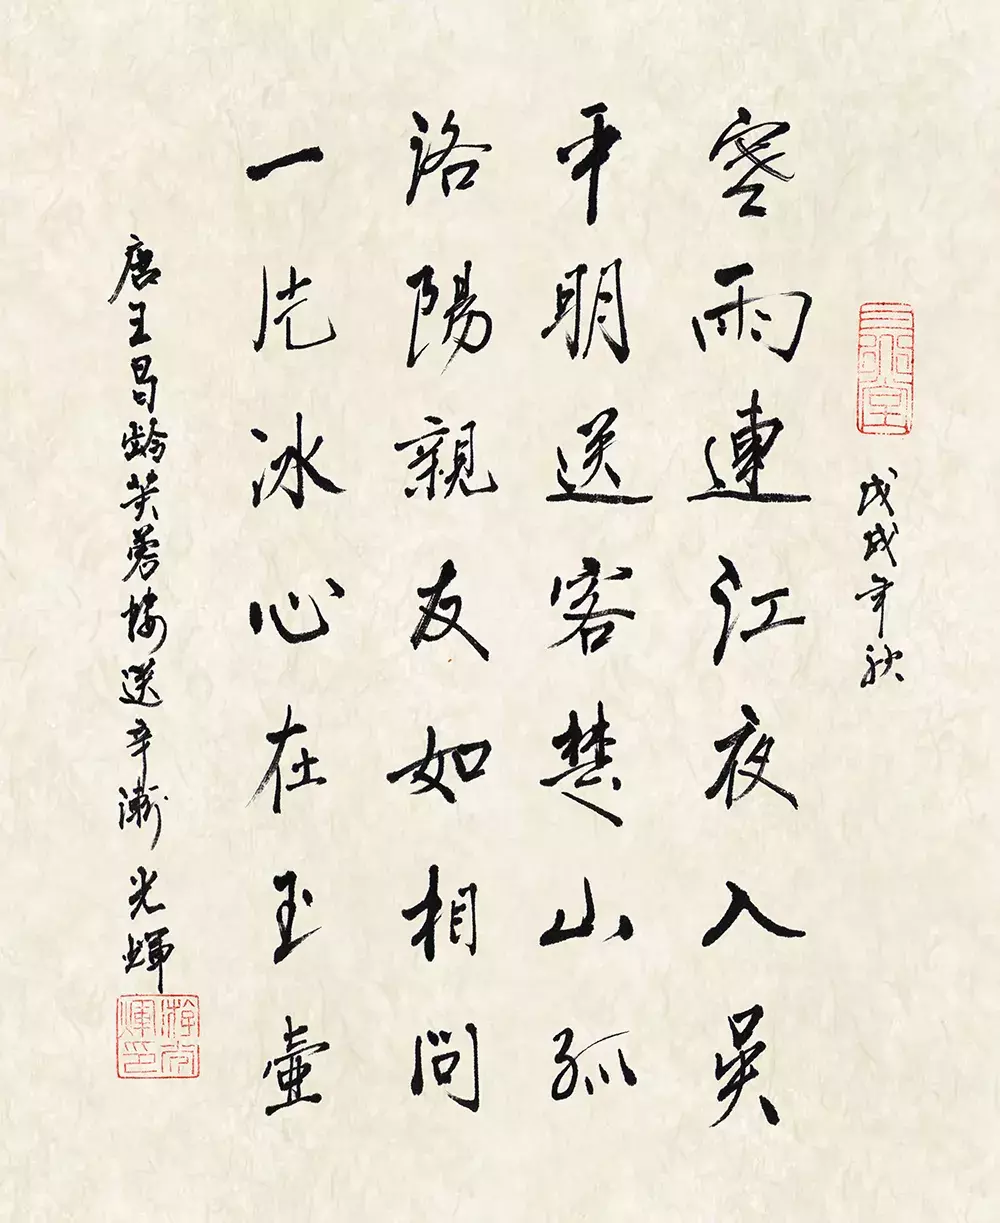 戊戌年秋
寒雨連江夜入吳
平明送客楚山孤
洛陽親友如相問
一片冰心在玉壺
唐王昌齡芙蓉樓送辛漸 光輝
游光輝印